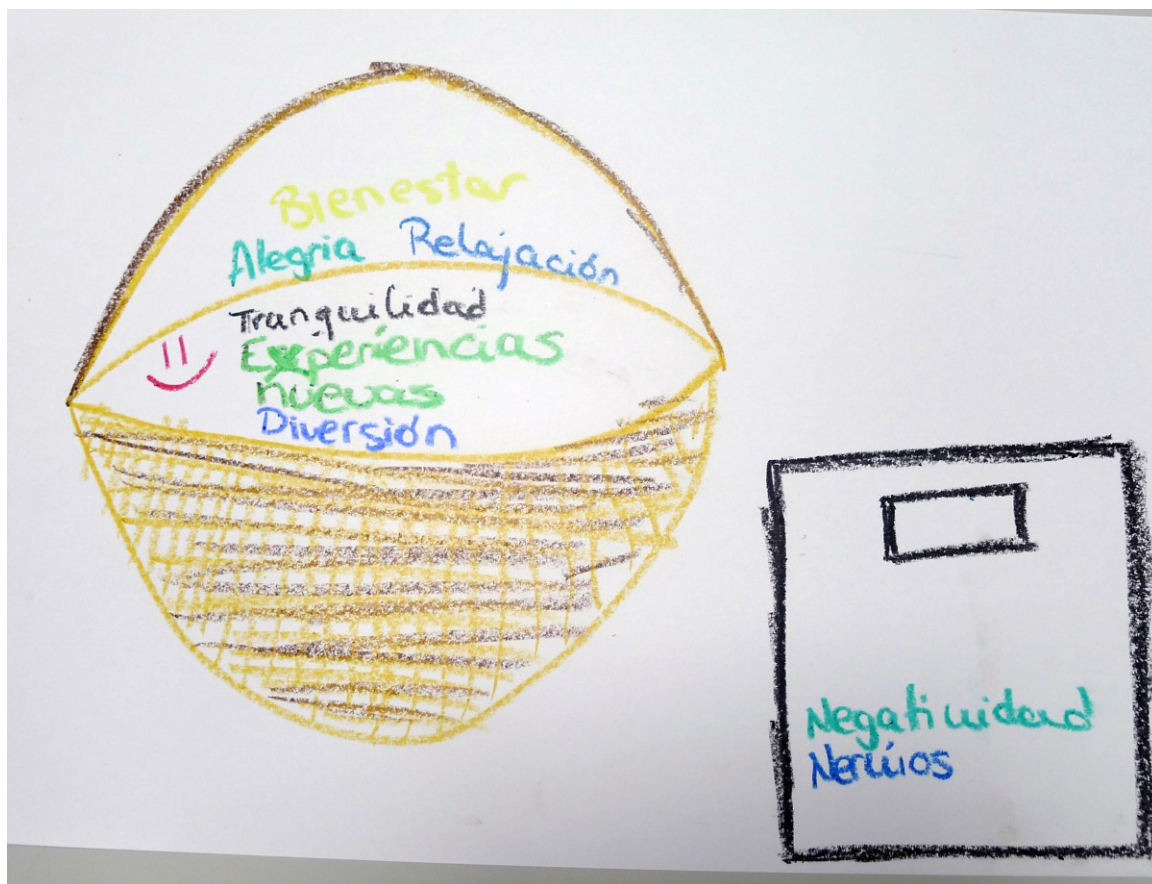 Bienestar
Alegria Relajación
Tranquilidad
Experiencias
nuevas
Diversión
Negatividad
Nervios